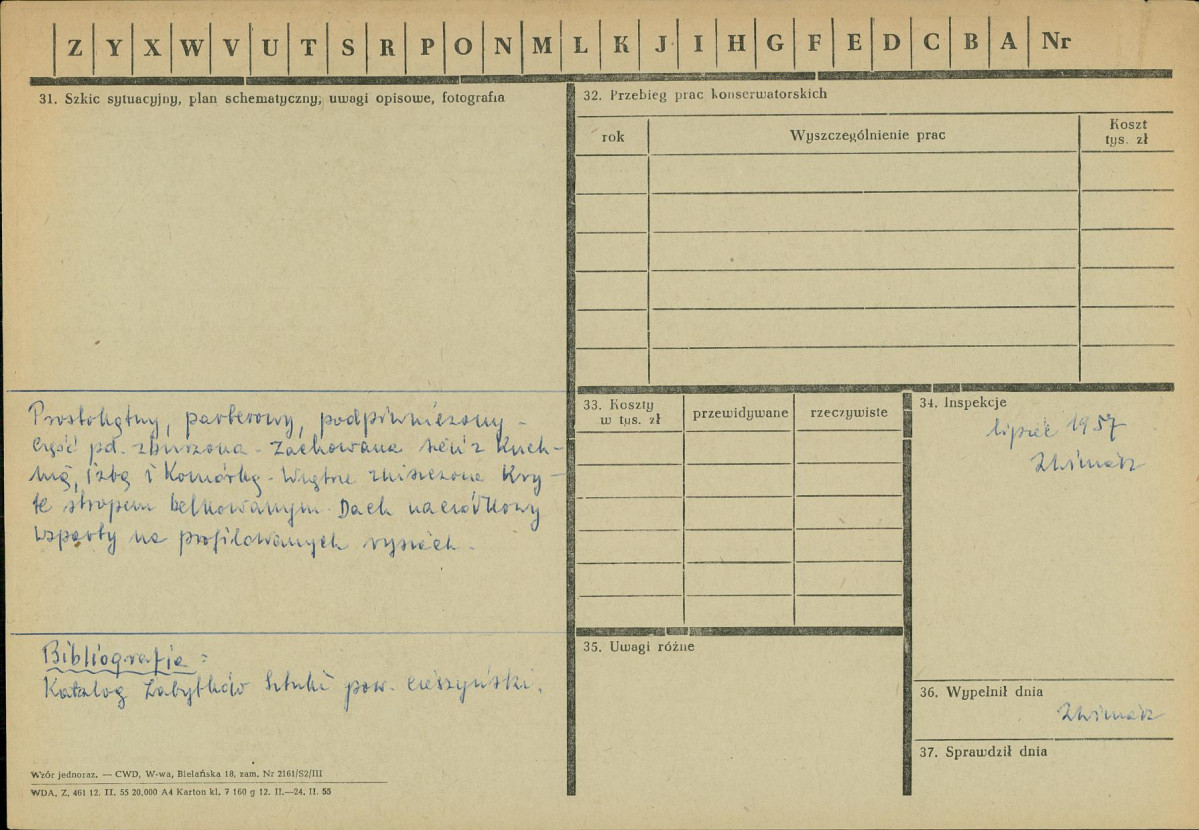 Z Y X W V U T S R P O N M L K J I H G F E D C B A Nr
31. Szkic sytuacyjny, plan schematyczny, uwagi opisowe, fotografia
Prostokątny, parterowy, podpiwniczony -
Część pd. zburzona - Zachowana sień z Kuch-
nią, izbą i Komórką - Wnętrze zniszczone Kry-
te stropem belkowanym. Dach naczółkowy
wsparty na profilowanych rysiach.
Bibliografia :
Katalog Zabytków Sztuki pow. Cieszyński.
Wzór jednoraz. — CWD, W-wa, Bielańska 18, zam. Nr 2161/S2/III
WDA. Z. 461 12. II. 55 20.000 A4 Karton kl. 7 160 g 12. II.—24. II. 55
32. Przebieg prac konserwatorskich
rok Wyszczególnienie prac Koszt
tys. zł
33. Koszty
w tys. zł przewidywane rzeczywiste
34. Inspekcje
lipiec 1957
35. Uwagi różne
36. Wypełnił dnia
37. Sprawdził dnia